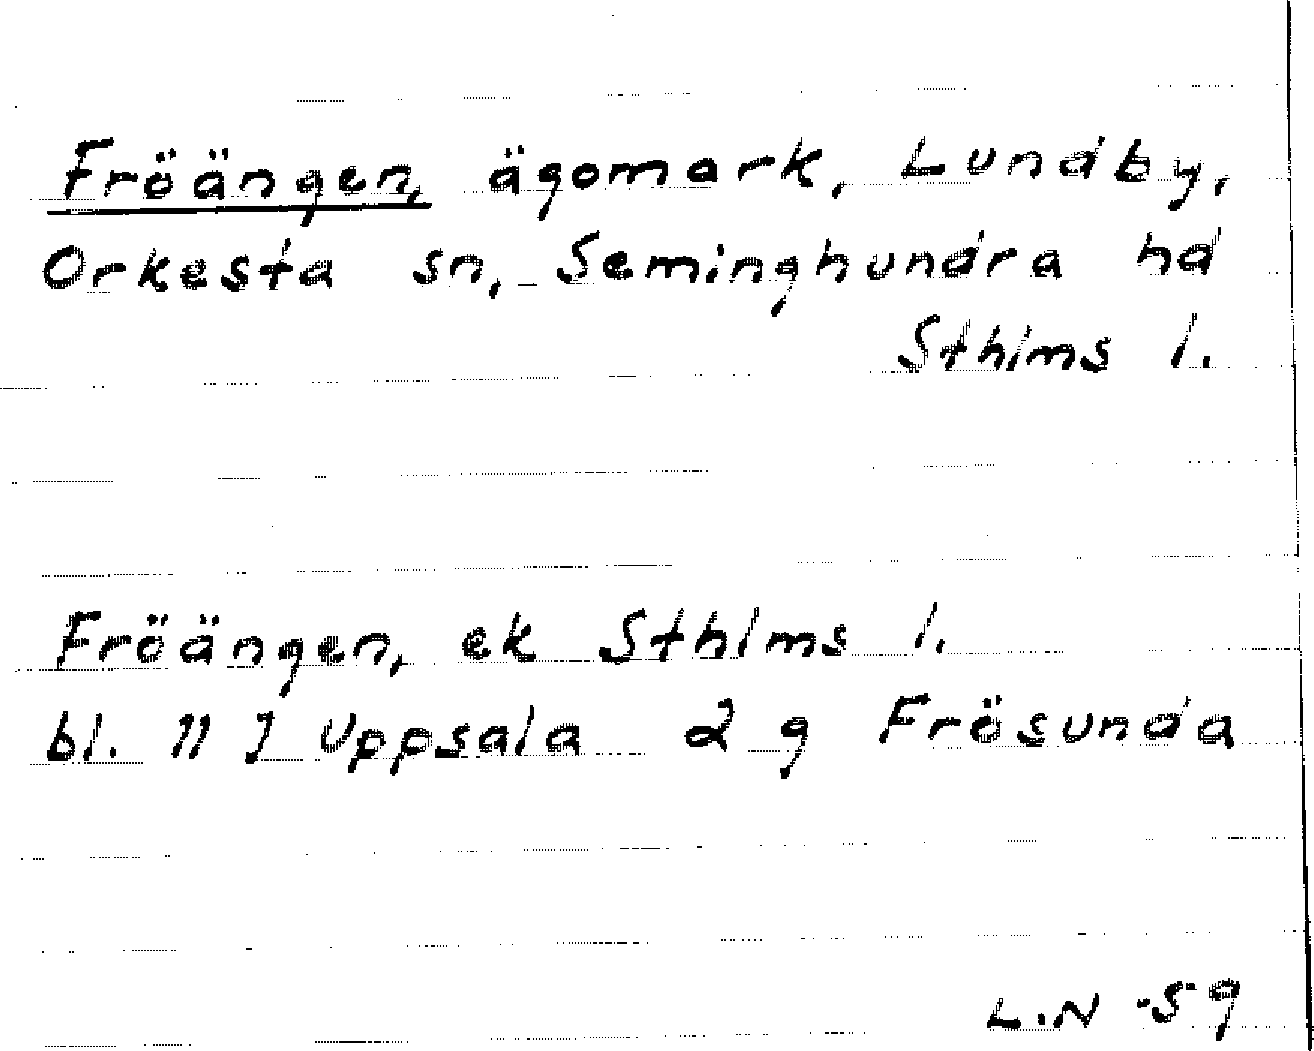 Fröängen, ägomark, Lundby,
Orkesta sn, Seminghundra hd
Sthlms l.
Fröängen, ek Sthlms l.
bl. 11 I Uppsala 2 g Frösunda
L.N -59